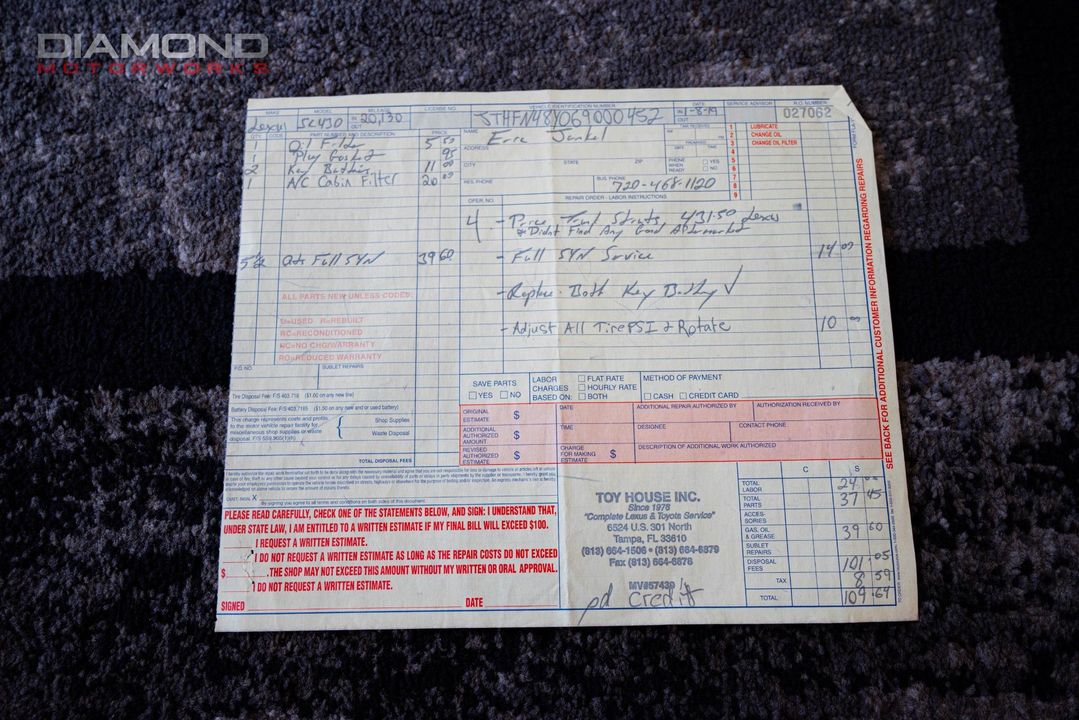 DIAMOND
MOTORWORKS
MAKE MODEL MILEAGE LICENSE NO. VEHICLE IDENTIFICATION NUMBER DATE SERVICE ADVISOR R.O. NUMBER
Lexus SC430 IN 20,130 JTHFN48Y069000452 IN 1-8-19 027062
OUT OUT
QTY. CODE PART NUMBER AND DESCRIPTION PRICE
1 Oil Filter 5 50
1 Plug Gasket 95
2 Key Batteries 11 00
1 A/C Cabin Filter 20 00
5 1/2 Qts Full SYN 39 60
ALL PARTS NEW UNLESS CODED
U=USED R=REBUILT
RC=RECONDITIONED
NC=NO CHG/WARRANTY
RO=REDUCED WARRANTY
P.O. NO. SUBLET REPAIRS
Tire Disposal Fee: F/S 403.718 ($1.00 on any new tire)
Battery Disposal Fee: F/S 403.7185 ($1.50 on any new and or used battery)
This charge represents costs and profits
to the motor vehicle repair facility for
miscellaneous shop supplies or waste
disposal. F/S 559.905(1)(h)
Shop Supplies
Waste Disposal
TOTAL DISPOSAL FEES
NAME
ADDRESS
CITY STATE ZIP
RES. PHONE BUS. PHONE
720-468-1120
TIME RECEIVED
PROMISED
DATE TIME
PHONE WHEN READY YES NO
1 LUBRICATE
2 CHANGE OIL
3 CHANGE OIL FILTER
4
5
6
7
8
9
OPER. NO. REPAIR ORDER - LABOR INSTRUCTIONS
4 - Price Trunk Struts, 431.50 Lexus
* Didnt Find Any Good Aftermarket
- Full SYN Service 14 00
- Replace Both Key Battery ✓
- Adjust All Tire PSI & Rotate 10 00
SAVE PARTS
YES NO
LABOR CHARGES BASED ON:
FLAT RATE
HOURLY RATE
BOTH
METHOD OF PAYMENT
CASH CREDIT CARD
ORIGINAL ESTIMATE $ DATE ADDITIONAL REPAIR AUTHORIZED BY AUTHORIZATION RECEIVED BY
ADDITIONAL AUTHORIZED AMOUNT $ TIME DESIGNEE CONTACT PHONE
REVISED AUTHORIZED ESTIMATE $ CHARGE FOR MAKING ESTIMATE $ DESCRIPTION OF ADDITIONAL WORK AUTHORIZED
SEE BACK FOR ADDITIONAL CUSTOMER INFORMATION REGARDING REPAIRS
X
By signing you agree to all terms and conditions on both sides of this document.
PLEASE READ CAREFULLY, CHECK ONE OF THE STATEMENTS BELOW, AND SIGN: I UNDERSTAND THAT,
UNDER STATE LAW, I AM ENTITLED TO A WRITTEN ESTIMATE IF MY FINAL BILL WILL EXCEED $100.
I REQUEST A WRITTEN ESTIMATE.
I DO NOT REQUEST A WRITTEN ESTIMATE AS LONG AS THE REPAIR COSTS DO NOT EXCEED
$ .THE SHOP MAY NOT EXCEED THIS AMOUNT WITHOUT MY WRITTEN OR ORAL APPROVAL.
I DO NOT REQUEST A WRITTEN ESTIMATE.
SIGNED DATE
TOY HOUSE INC.
Since 1976
"Complete Lexus & Toyota Service"
6524 U.S. 301 North
Tampa, FL 33610
(813) 664-1506 • (813) 664-6879
Fax (813) 664-6876
MV#57439
pd Credit
C S
TOTAL LABOR 24 00
TOTAL PARTS 37 45
ACCESSORIES
GAS, OIL & GREASE 39 60
SUBLET REPAIRS
DISPOSAL FEES 101 05
TAX 8 59
TOTAL 109 64